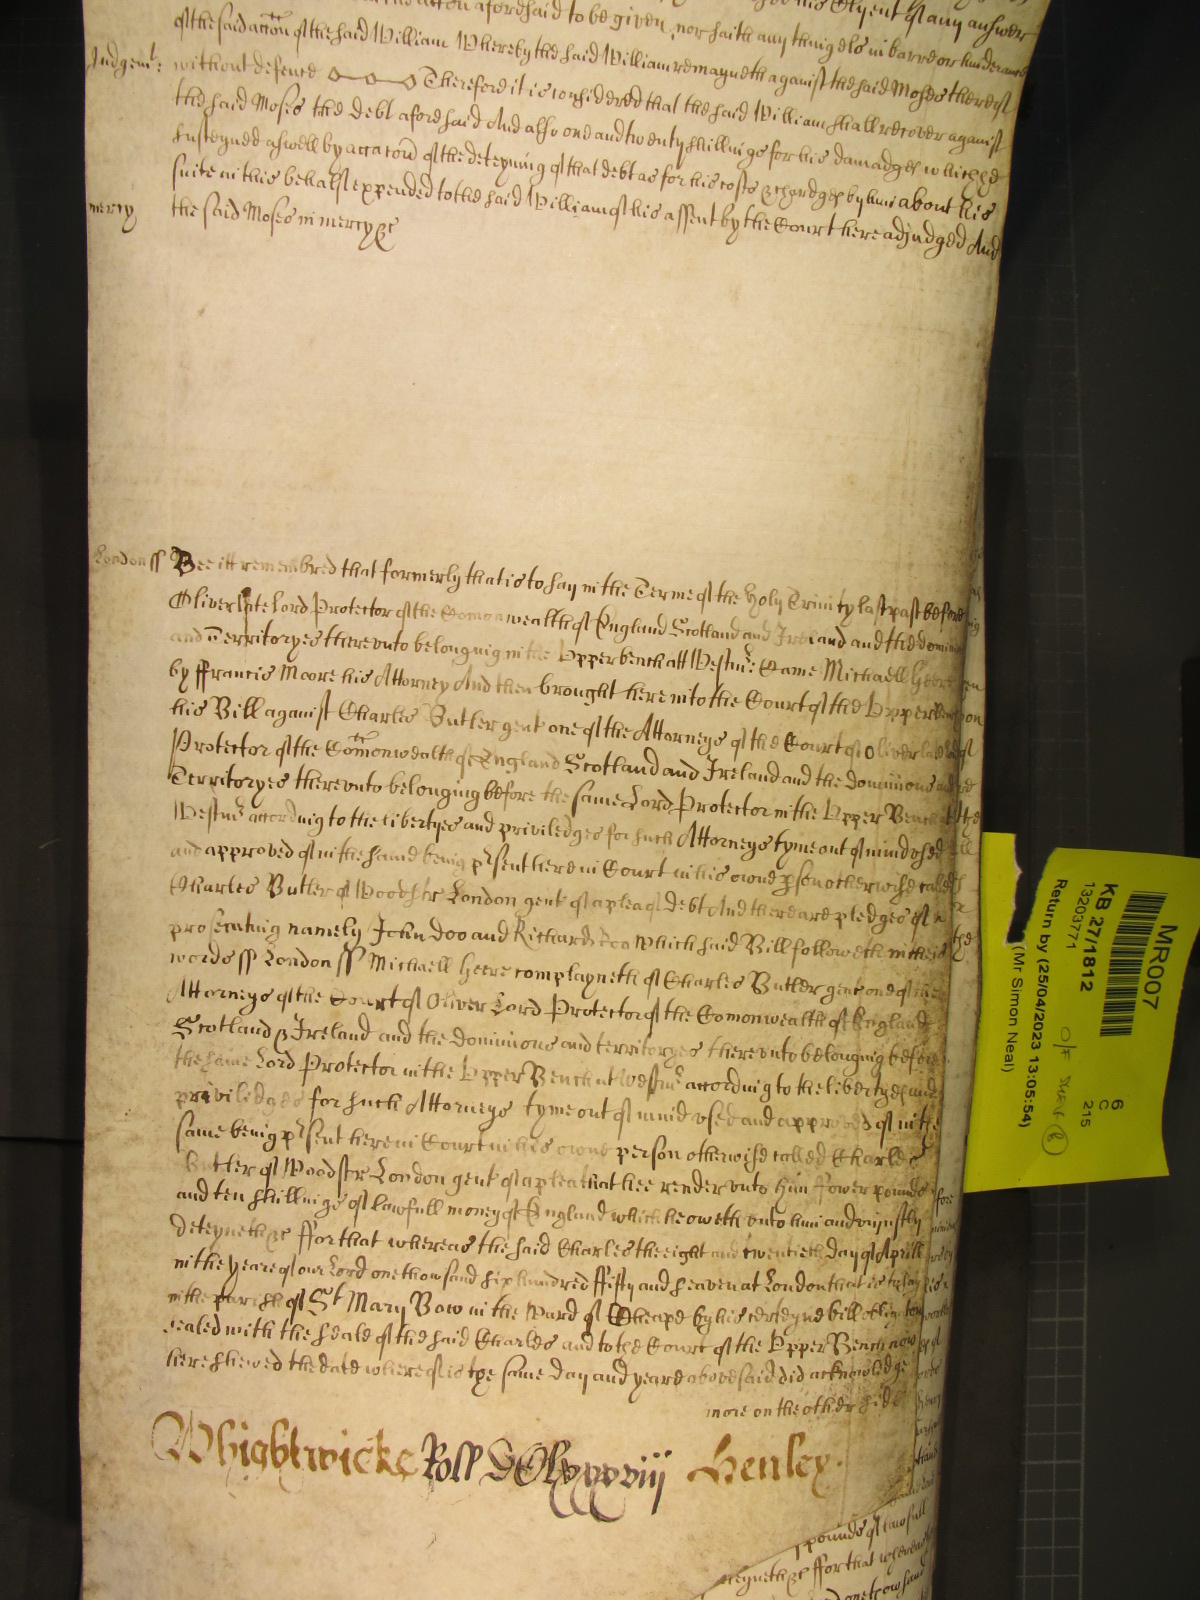 acton aforesaid to be given nor saith any thinge els in barre or hinderance
of the said acton of the said William Whereby the said William remayneth against the said Moses therein
Judgemt: without defence Therefore it is considered that the said William shall recover against
the said Moses the debt aforesaid And also one and twenty shillings for his damadges which hee
susteyned aswell by accacon of the deteyning of that debt as for his costs & chardges by him about his
suite in this behalf expended to the said William of his assent by the Court here adjudged And
mercy the said Moses in mercy &c
London ss Bee itt remembred that formerly that is to say in the Terme of the Holy Trinity last past before
Oliver late Lord Protector of the Comonwealth of England Scotland and Ireland and the dominions
and Territoryes thereunto belonging in the Upper bench att Westmr: Came Michaell Heere
by ffrancis Moore his Attorney And then brought here into the Court of the Upper bench
his Bill against Charles Butler gent one of the Attorneys of the Court of Oliver late
Protector of the Comonwealth of England Scotland and Ireland and the dominions and
Territoryes thereunto belonging before the same Lord Protector in the Upper Bench at
Westmr according to the libertyes and priviledges for such Attorneys tyme out of mind used
and approved of in the same being pesent here in Court in his owne pson otherwise called
Charles Butler of Woodstr London gent of a plea of debt And there are pledges of
prosecuting namely John Doo and Richard Roo which said Bill followeth in theis
words ss London ss Michaell Heere complayneth of Charles Butler gent one of the
Attorneys of the Court of Oliver Lord Protector of the Comonwealth of England
Scotland & Ireland and the dominions and territoryes thereunto belonging before
the same Lord Protector in the Upper Bench at Westmr according to the libertyes and
priviledges for such Attorneys tyme out of mind used and approved of in the
same being pesent here in Court in his owne person otherwise called Charles
Butler of Woodstr London gent of a plea that hee render unto him fower pounds
and ten shillings of lawfull money of England which he oweth unto him and unjustly
deteyneth &c ffor that whereas the said Charles the eight and twentieth day of Aprill
in the yeare of our Lord one thousand six hundred ffifty and seaven at London that is to say
in the parish of St Mary Bow in the Ward of Cheape by his certeyne bill obligatory
sealed with the seale of the said Charles and to the Court of the Upper Bench now
here shewed the date whereof is the same day and yeare abovesaid did acknowledge
more on the other side
Whightwicke Roll Henley
pounds of lawfull
deteyneth &c ffor that whereas
one thousand
MR007
KB 27/1812
13203771
Return by (25/04/2023 13:05:54)
(Mr Simon Neal)
6
C
215